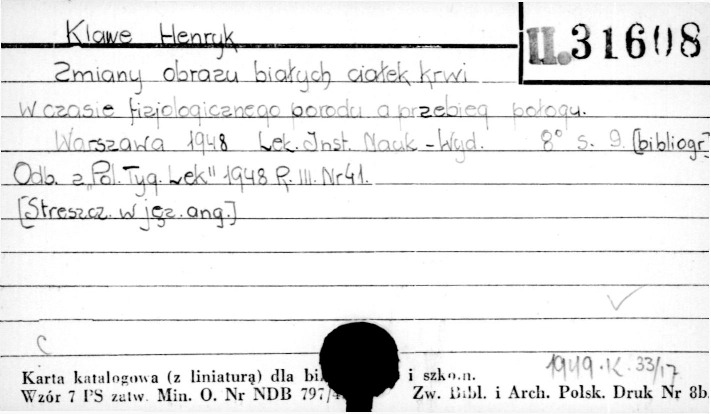 Klawe Henryk
II.31608
Zmiany obrazu białych ciałek krwi
w czasie fizjologicznego porodu a przebieg połogu.
Warszawa 1948 Lek. Inst. Nauk-Wyd. 8° s. 9. [bibliogr.]
Odb. z „Pol. Tyg. Lek" 1948 R. III. Nr 41.
[Streszcz. w jęz. ang.]
C
1949.K.33/17
Karta katalogowa (z liniaturą) dla i szkoln.
Wzór 7 PS zatw. Min. O. Nr NDB 797/4 Zw. Bibl. i Arch. Polsk. Druk Nr 8b.